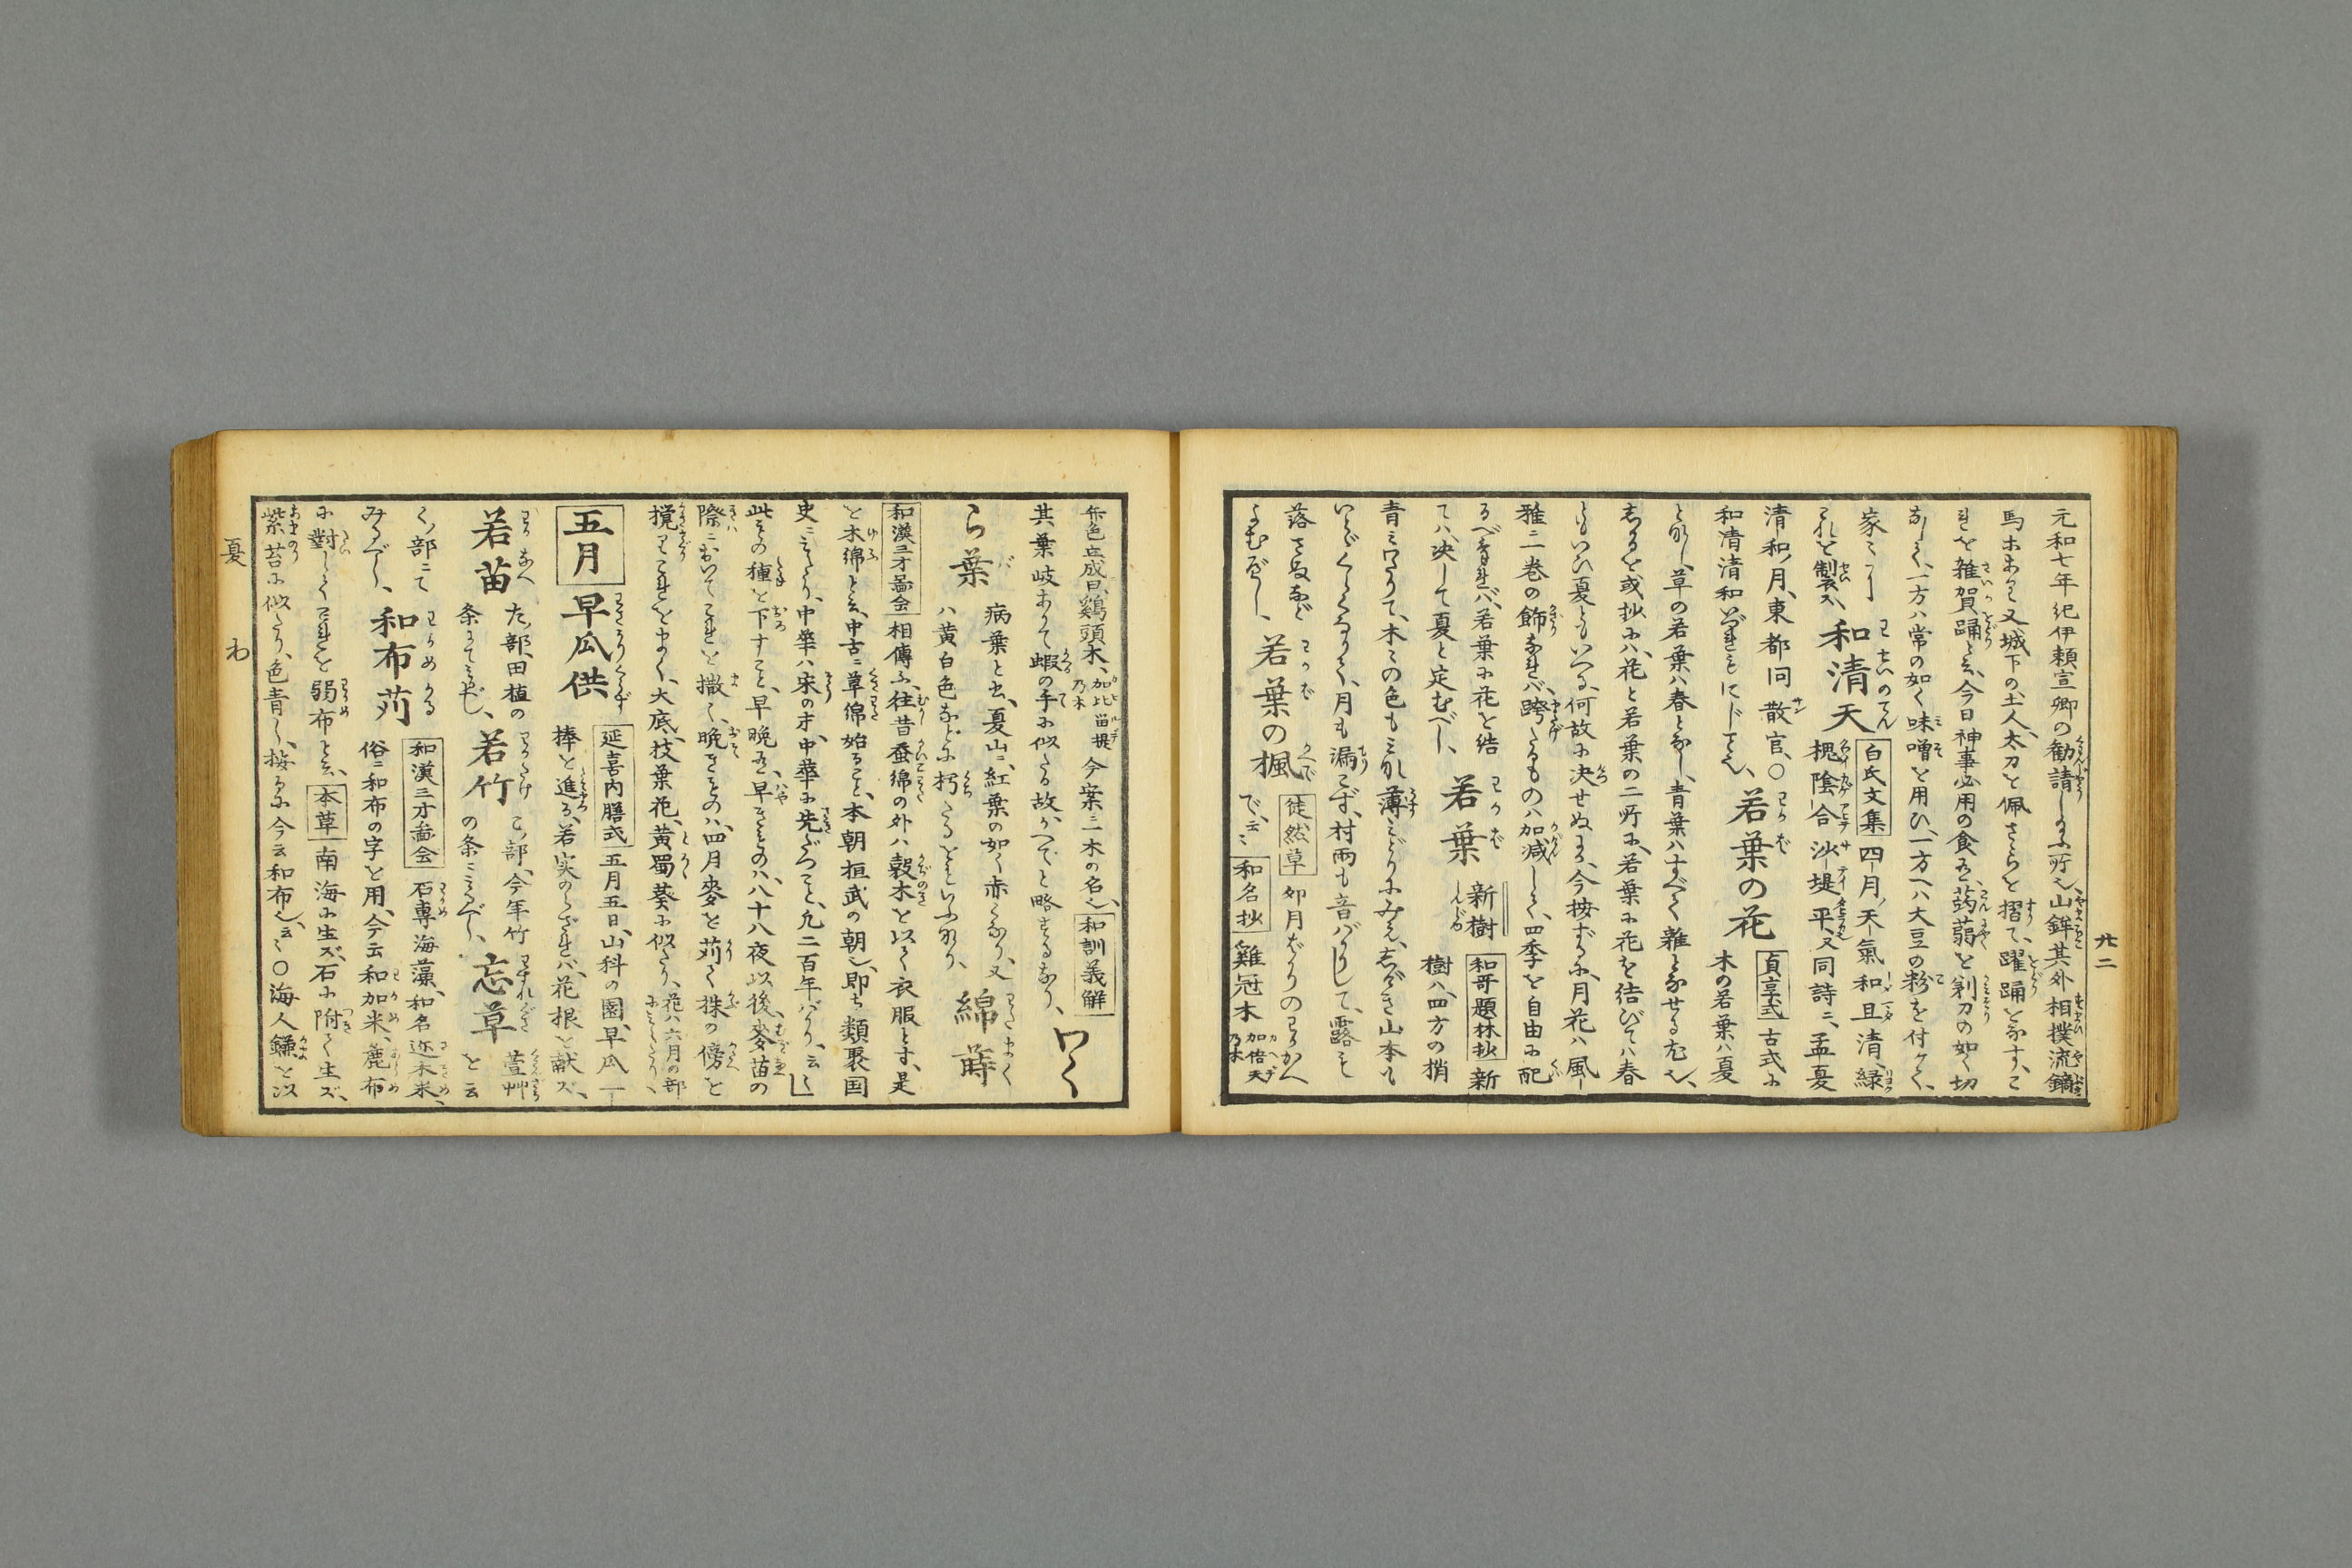 廿二
元和七年紀伊頼宣卿の勧請しよふ所也、山鉾其外相撲流鏑
馬ホあり又城下の土人、太刀を佩さらを摺て、躍踊をなす、こ
れを雑賀踊と云、今日神事必用の食ハ、蒟蒻を剃刀の如く切
なして、一方ハ常の如く味噌を用ひ、一方へハ大豆の粉を付ケて、
家ごとにこれを製ス
和清天
白氏文集
四月天氣和且清、緑
槐陰合沙堤平、又同詩ニ、孟夏
清和ノ月、東都同散官、〇
和清清和いづれも
若葉の花
貞享式
古式に
木の若葉ハ夏
となし、草の若葉ハ春となし、青葉ハすべて雑となせる也、
しかるを或抄にハ、花と若葉の二所に、若葉に花を結びてハ春
ともいひ夏ともいへる、何故に決せぬにか、今按ずるに、月花ハ風
雅ニ一巻の飾なれバ、跨たるものハ加減して、四季を自由に配
るべきなれバ、若葉に花を結
てハ、決して夏と定むべし、
若葉
新樹
和哥題林抄
新樹ハ四方の梢
青ミわたりて、木ゝの色もミな薄ミどりにみえ、しげき山本も
いとゞくらくなりて、月も漏こず、村雨も音バかりして、露も
落さぬなど
よむべし、
若葉の楓
徒然草
卯月ばかりのわかかへ
で、云ゝ
和名抄
雞冠木
加倍天乃木
弁色立成曰、鷄頭木、
加比留提乃木
今案二木の名也、
和訓義解
其葉岐ありて蝦の手に似たる故、かへでと略するなり、
わく
ら葉
病葉と云、夏山ニ、紅葉の如く赤くなり、又
ハ黄白色などに朽たるをいふなり、
綿蒔
和漢三才圖会
相傳ふ、往昔蚕綿の外ハ、穀木を以て衣服とす、是
を木綿と云、中古ニ草綿始ること、本朝桓武の朝也、即ち類聚国
史ニみえたり、中華ハ宋の末、中華に先だつこと、凡二百年バかり、云ゝ
此その種を下すこと、早晩あり、早きものハ、八十八夜以後、麥苗の
際ニおいてこれを撒く、晩きものハ、四月麥を苅て株の傍を
撹てこれをまく、大底、枝葉花、黄蜀葵に似たり、
花ハ六月の部にみえたり、
五月
早瓜供
延喜内膳式
五月五日、山科の園、早瓜一
捧を進る、若実のらざれバ、花根を献ズ、
若苗
た部、田植の
条にてミゆべし、
若竹
こ部、今年竹
の条ニみるべし、
忘草
萱艸
を云
く部ニて
みるべし、
和布苅
和漢三才圖会
石蓴海藻、和名迩木米、
俗ニ和布の字を用、今云和加米、麁布
に對してこれを弱布と云、
本草
南海に生ズ、石に附て生ズ、
紫苔に似たり、色青し、按るに今云和布也、云ゝ〇海人鎌を以
夏
わ